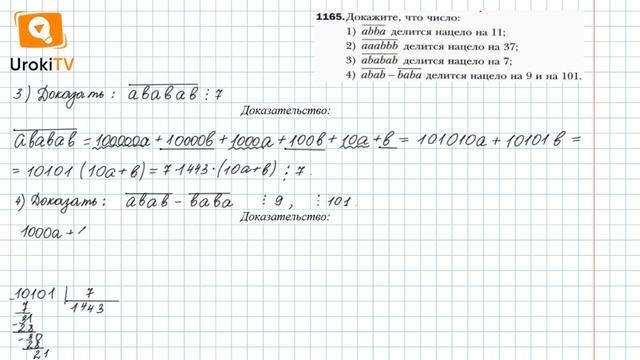 UrokiTV
1165. Докажите, что число:
1) abba делится нацело на 11;
2) aaabbb делится нацело на 37;
3) ababab делится нацело на 7;
4) abab – baba делится нацело на 9 и на 101.
3) Доказать: ававав ⋮ 7
Доказательство:
ававав = 100000а + 10000в + 1000а + 100в + 10а + в = 101010а + 10101в =
= 10101 (10а+в) = 7·1443·(10а+в) ⋮ 7.
4) Доказать: авав – вава ⋮ 9, ⋮ 101.
Доказательство:
1000а +
10101 | 7
7 1443
31
28
30
28
21